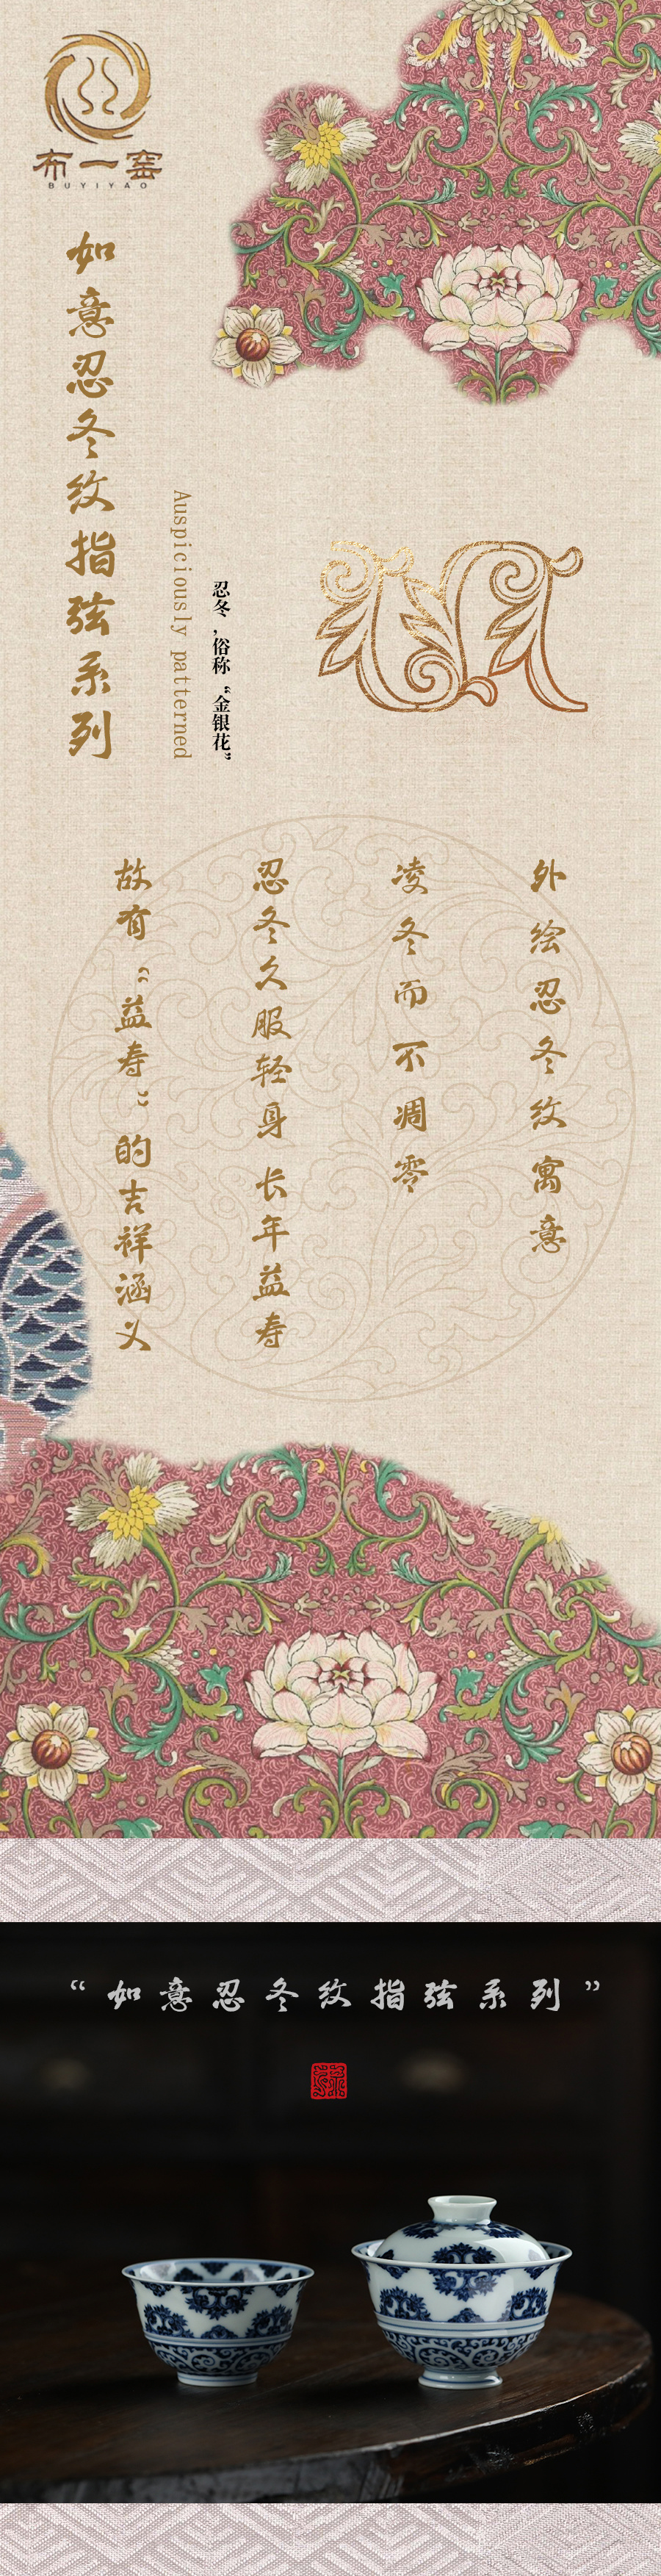 布一窑
BUYIYAO
如意忍冬纹指弦系列
Auspiciously patterned
忍冬，俗称“金银花”
外绘忍冬纹寓意
凌冬而不凋零
忍冬久服轻身 长年益寿
故有“益寿”的吉祥涵义
“如意忍冬纹指弦系列”